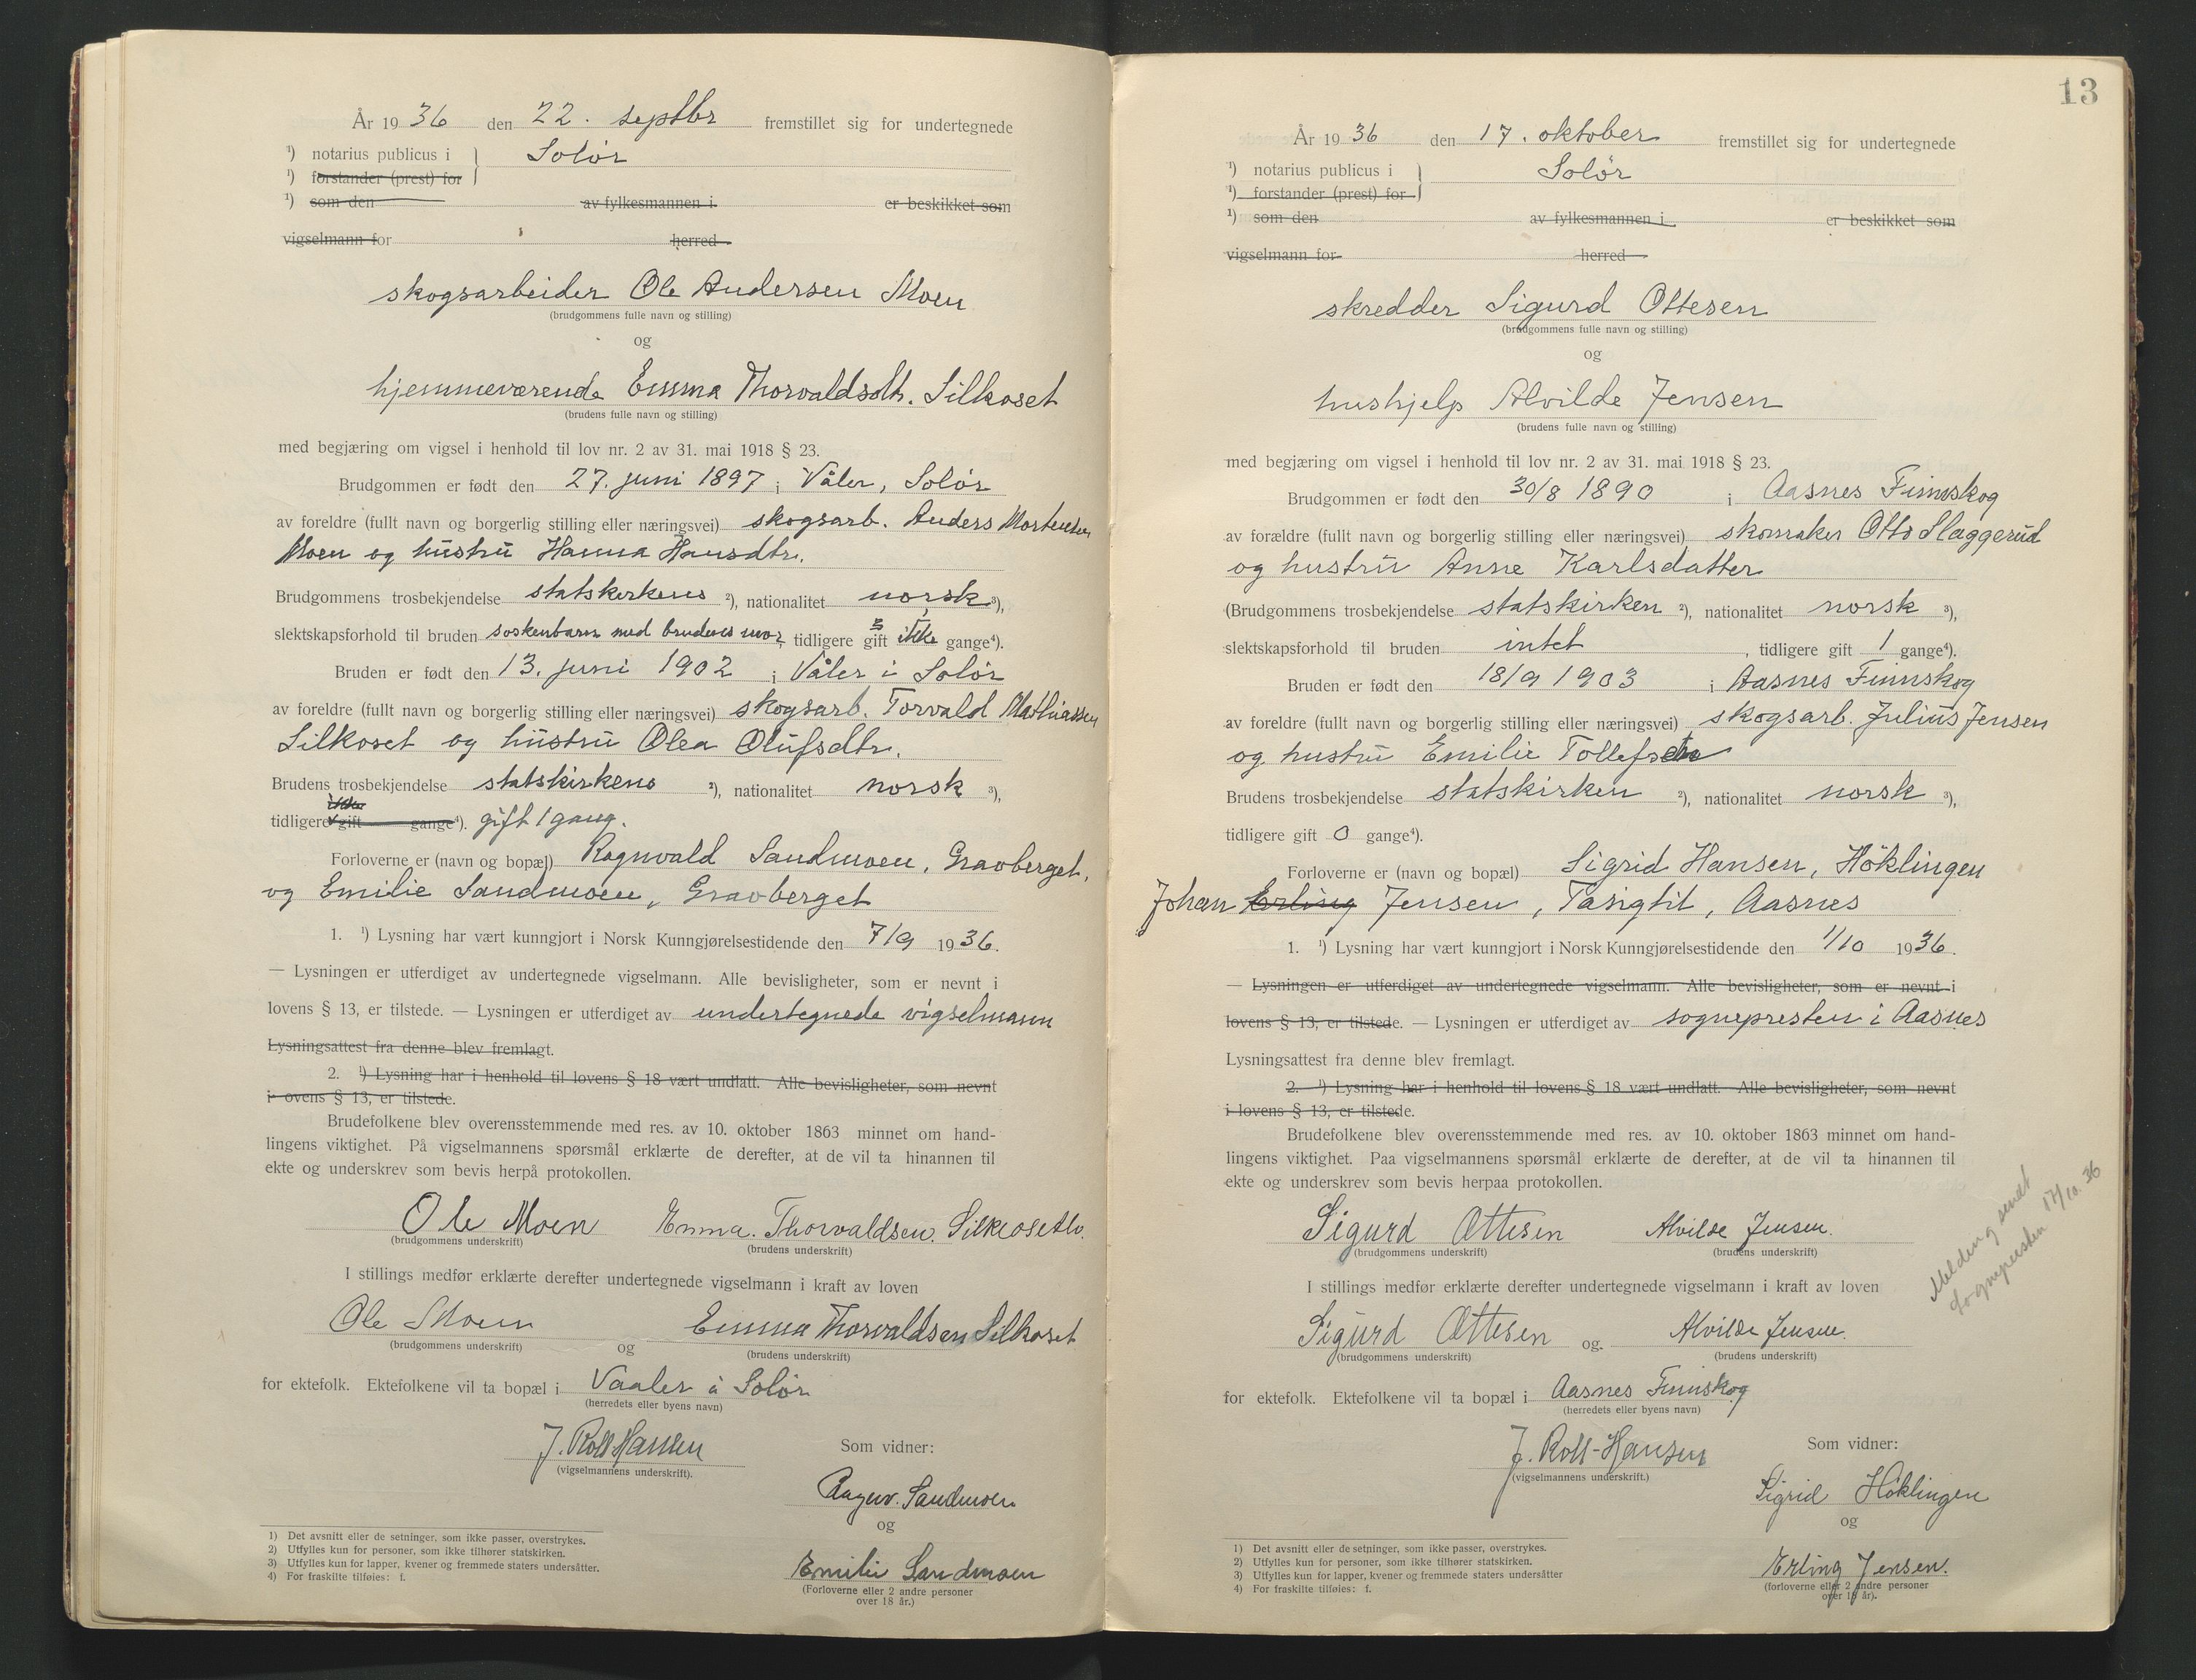 År 1936 den 22. septbr fremstillet sig for undertegnede
¹) notarius publicus i } Solør
¹) forstander (prest) for
¹) som den av fylkesmannen i er beskikket som
vigselmann for herred
skogsarbeider Ole Andersen Moen
(brudgommens fulle navn og stilling)
og
hjemmeværende Emma Thorvaldsdtr. Silkoset
(brudens fulle navn og stilling)
med begjæring om vigsel i henhold til lov nr. 2 av 31. mai 1918 § 23.
Brudgommen er født den 27. juni 1897 i Våler, Solør
av foreldre (fullt navn og borgerlig stilling eller næringsvei) skogsarb. Anders Mortensen
Moen og hustru Hanna Hansdtr.
Brudgommens trosbekjendelse statskirkens ²), nationalitet norsk ³),
slektskapsforhold til bruden søskenbarn med brudens mor, tidligere gift ikke gange⁴).
Bruden er født den 13. juni 1902 i Våler i Solør
av foreldre (fullt navn og borgerlig stilling eller næringsvei) skogsarb. Torvald Mathiassen
Silkoset og hustru Olea Olufsdtr.
Brudens trosbekjendelse statskirkens ²), nationalitet norsk ³),
ikke
tidligere gift gange⁴). gift 1 gang.
Forloverne er (navn og bopæl) Ragnvald Sandmoen, Gravberget,
og Emilie Sandmoen, Gravberget
1. ¹) Lysning har vært kunngjort i Norsk Kunngjørelsestidende den 7/9 1936.
— Lysningen er utferdiget av undertegnede vigselmann. Alle bevisligheter, som er nevnt i
lovens § 13, er tilstede. — Lysningen er utferdiget av undertegnede vigselmann
Lysningsattest fra denne blev fremlagt.
2. ¹) Lysning har i henhold til lovens § 18 vært undlatt. Alle bevisligheter, som nevnt
i ovens § 13, er tilstede.
Brudefolkene blev overensstemmende med res. av 10. oktober 1863 minnet om hand-
lingens viktighet. På vigselmannens spørsmål erklærte de derefter, at de vil ta hinannen til
ekte og underskrev som bevis herpå protokollen.
Ole Moen Emma. Thorvaldsen. Silkoset
(brudgommens underskrift) (brudens underskrift)
I stillings medfør erklærte derefter undertegnede vigselmann i kraft av loven
Ole Moen og Emma Thorvaldsen Silkoset
(brudgommens underskrift) (brudens underskrift)
for ektefolk. Ektefolkene vil ta bopæl i Vaaler i Solør
(herredets eller byens navn)
J. Roll Hansen
(vigselmannens underskrift).
Som vidner:
Ragnv. Sandmoen
og
Emilie Sandmoen
(Forloverne eller 2 andre personer
over 18 år.)
1) Det avsnitt eller de setninger, som ikke passer, overstrykes.
2) Utfylles kun for personer, som ikke tilhører statskirken.
3) Utfylles kun for lapper, kvener og fremmede staters undersåtter.
4) For fraskilte tilføies: f.
13
År 1936 den 17. oktober fremstillet sig for undertegnede
¹) notarius publicus i } Solør
¹) forstander (prest) for
¹) som den av fylkesmannen i er beskikket som
vigselmann for herred
skredder Sigurd Ottesen
(brudgommens fulle navn og stilling)
og
hushjelp Alvilde Jensen
(brudens fulle navn og stilling)
med begjæring om vigsel i henhold til lov nr. 2 av 31. mai 1918 § 23.
Brudgommen er født den 30/8 1890 i Aasnes Finnskog
av forældre (fullt navn og borgerlig stilling eller næringsvei) skomaker Otto Slaggerud
og hustru Anne Karlsdatter
(Brudgommens trosbekjendelse statskirken ²), nationalitet norsk ³),
slektskapsforhold til bruden intet, tidligere gift 1 gange⁴).
Bruden er født den 18/9 1903 i Aasnes Finnskog
av foreldre (fullt navn og borgerlig stilling eller næringsvei) skogsarb. Julius Jensen
og hustru Emilie
Brudens trosbekjendelse statskirken ²), nationalitet norsk ³),
tidligere gift 0 gange⁴).
Forloverne er (navn og bopæl) Sigrid Hansen, Höklingen
Johan Erling Jensen, Aasnes
1. ¹) Lysning har vært kunngjort i Norsk Kunngjørelsestidende den 1/10 1936.
— Lysningen er utferdiget av undertegnede vigselmann. Alle bevisligheter, som er nevnt i
lovens § 13, er tilstede. — Lysningen er utferdiget av sognepresten i Aasnes
Lysningsattest fra denne blev fremlagt.
2. ¹) Lysning har i henhold til lovens § 18 vært undlatt. Alle bevisligheter, som nevnt
i lovens § 13, er tilstede.
Brudefolkene blev overensstemmende med res. av 10. oktober 1863 minnet om hand-
lingens viktighet. Paa vigselmannens spørsmål erklærte de derefter, at de vil ta hinannen til
ekte og underskrev som bevis herpaa protokollen.
Sigurd Ottesen Alvilde Jensen.
(brudgommens underskrift) (brudens underskrift)
I stillings medfør erklærte derefter undertegnede vigselmann i kraft av loven
Sigurd Ottesen og. Alvilde Jensen.
(brudgommens underskrift) (brudens underskrift)
for ektefolk. Ektefolkene vil ta bopæl i Aasnes Finnskog
(herredets eller byens navn)
J. Roll-Hansen
(vigselmannens underskrift.)
Som vidner:
Sigrid Höklingen
og
Erling Jensen.
(forloverne eller 2 andre personer
over 18 år).
1) Det avsnitt eller de setninger, som ikke passer, overstrykes.
2) Utfylles kun for personer, som ikke tilhører statskirken.
3) Utfylles kun for lapper, kvener og fremmede staters undersåtter
4) For fraskilte tilføies: f.
Melding sendt
sognepresten 17/10.36